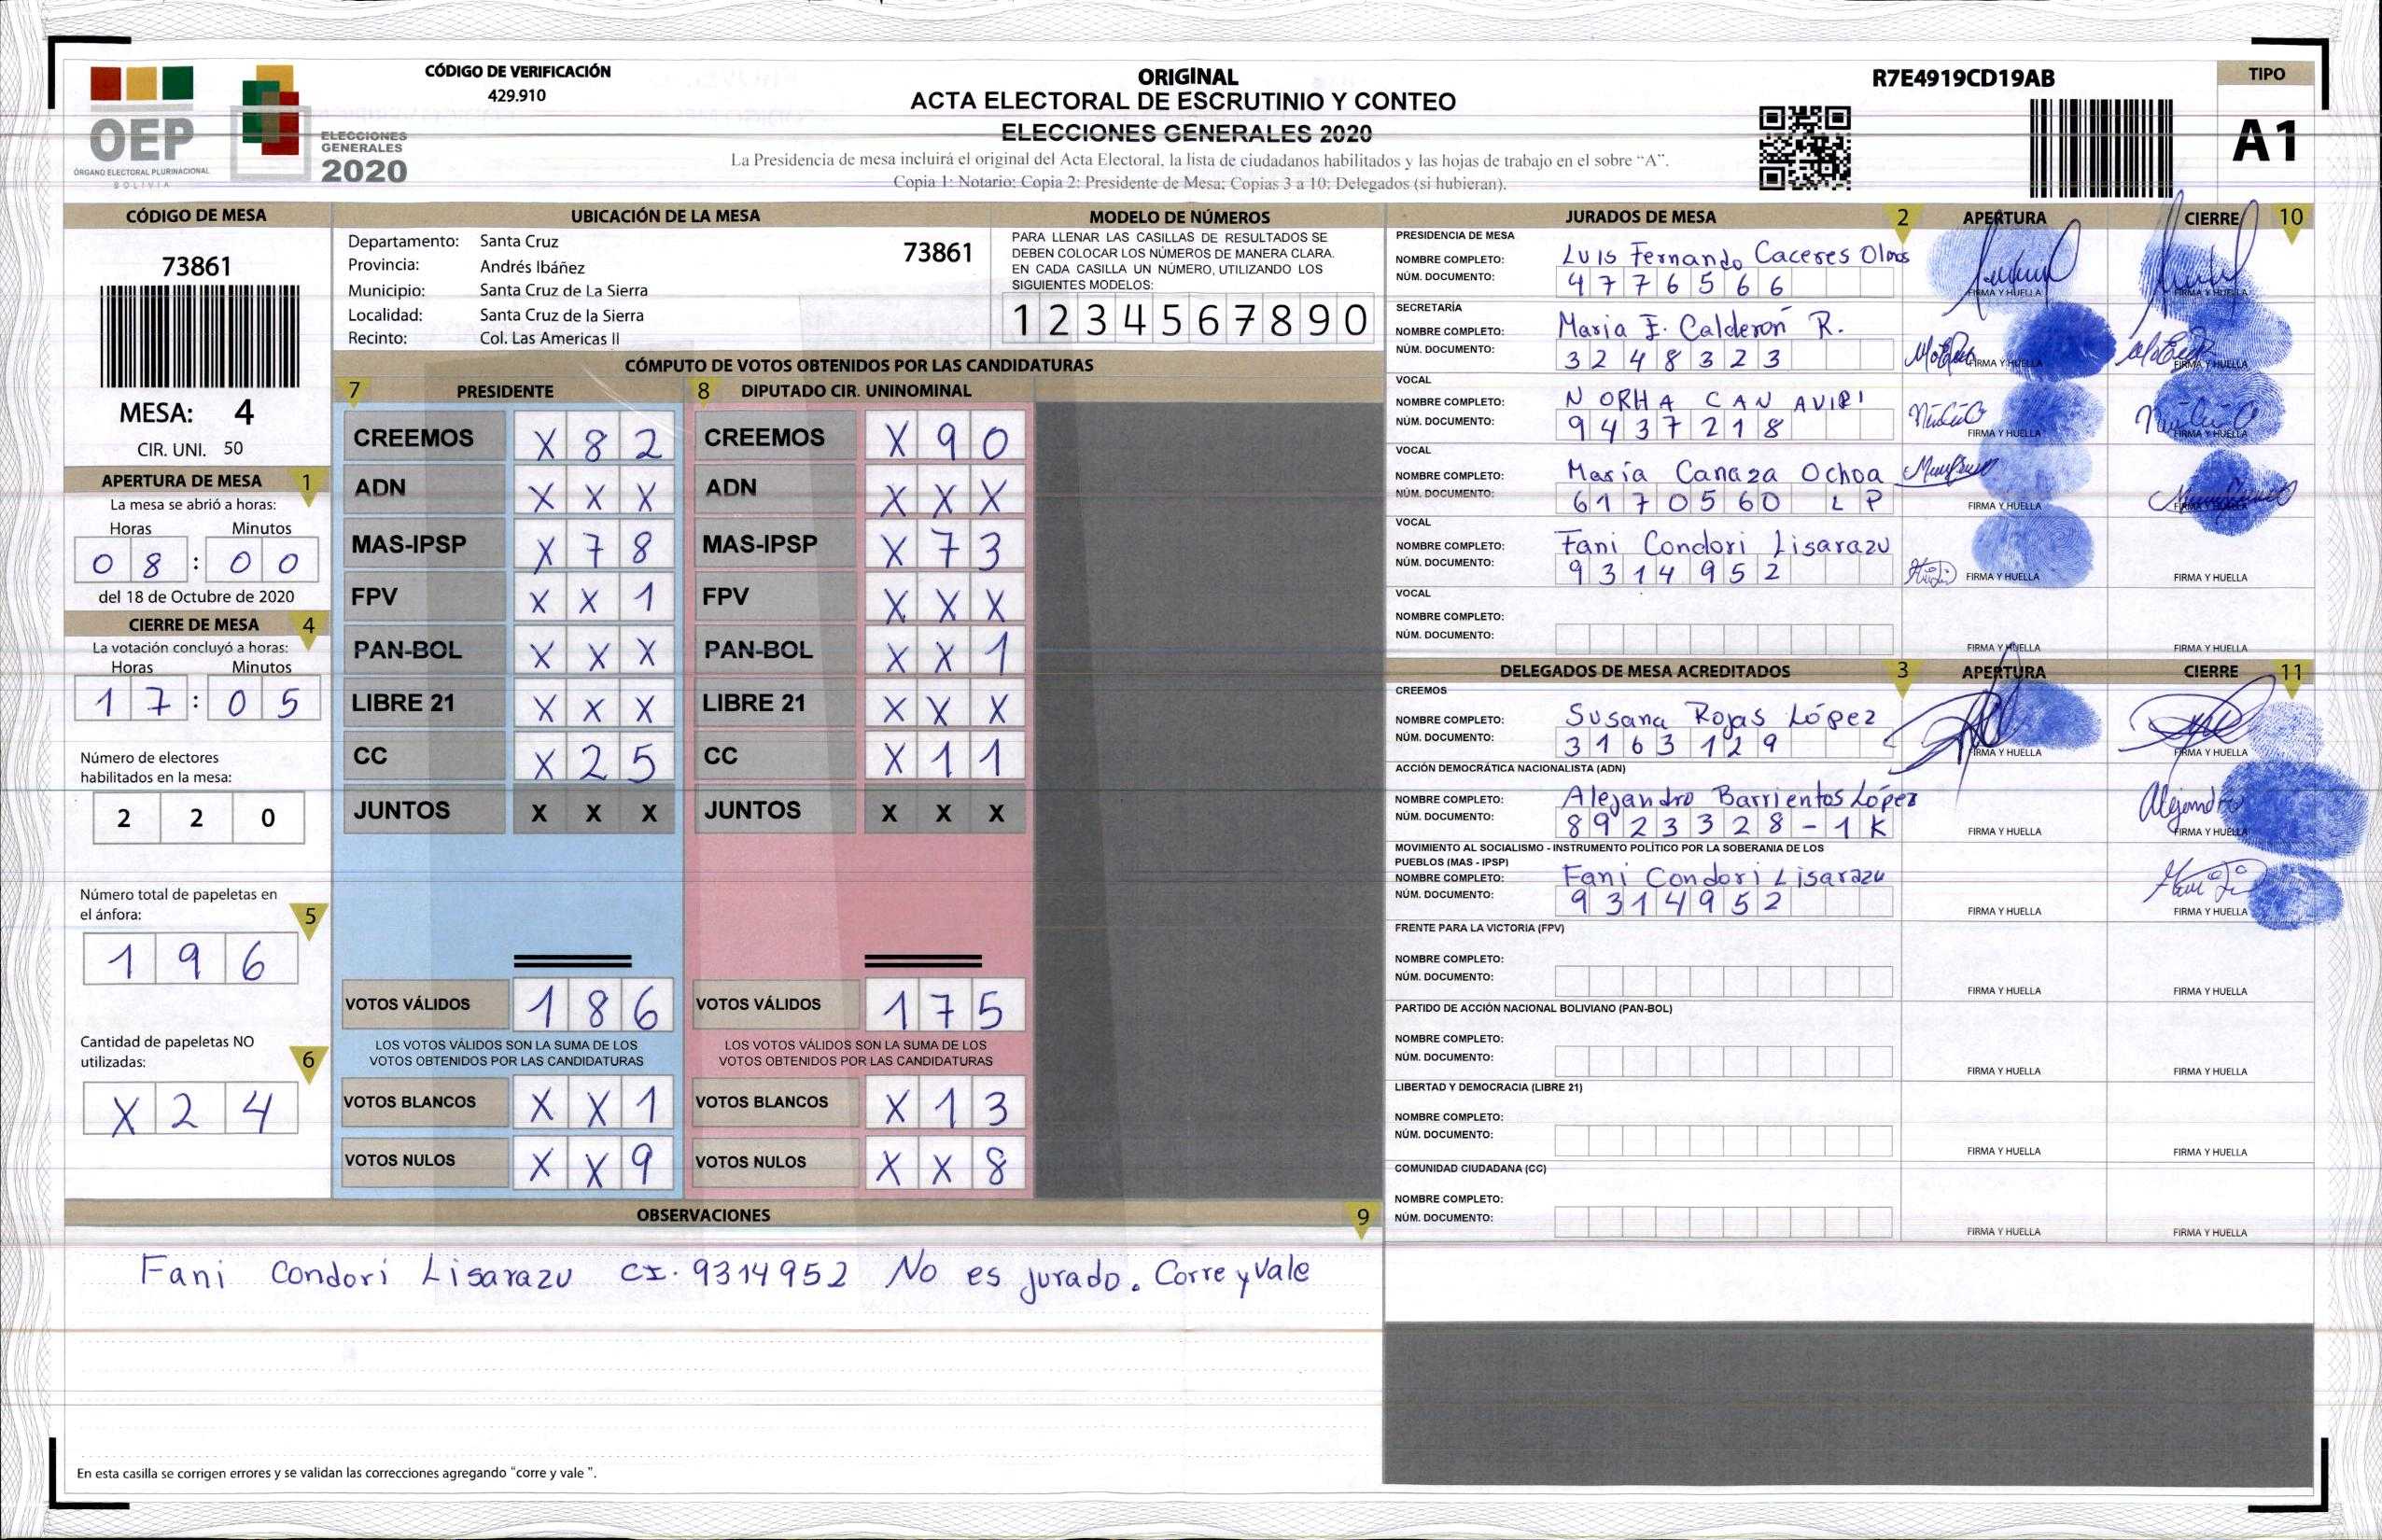 OEP
ÓRGANO ELECTORAL PLURINACIONAL
BOLIVIA
ELECCIONES
GENERALES
2020
CÓDIGO DE VERIFICACIÓN
429.910
ORIGINAL
ACTA ELECTORAL DE ESCRUTINIO Y CONTEO
ELECCIONES GENERALES 2020
La Presidencia de mesa incluirá el original del Acta Electoral, la lista de ciudadanos habilitados y las hojas de trabajo en el sobre “A”.
Copia 1: Notario; Copia 2: Presidente de Mesa; Copias 3 a 10: Delegados (si hubieran).
R7E4919CD19AB
TIPO
A1
CÓDIGO DE MESA
73861
MESA: 4
CIR. UNI. 50
APERTURA DE MESA 1
La mesa se abrió a horas:
Horas Minutos
0 8 : 0 0
del 18 de Octubre de 2020
CIERRE DE MESA 4
La votación concluyó a horas:
Horas Minutos
1 7 : 0 5
Número de electores
habilitados en la mesa:
2 2 0
Número total de papeletas en
el ánfora: 5
1 9 6
Cantidad de papeletas NO
utilizadas: 6
X 2 4
UBICACIÓN DE LA MESA
Departamento: Santa Cruz 73861
Provincia: Andrés Ibáñez
Municipio: Santa Cruz de La Sierra
Localidad: Santa Cruz de la Sierra
Recinto: Col. Las Americas II
MODELO DE NÚMEROS
PARA LLENAR LAS CASILLAS DE RESULTADOS SE
DEBEN COLOCAR LOS NÚMEROS DE MANERA CLARA.
EN CADA CASILLA UN NÚMERO, UTILIZANDO LOS
SIGUIENTES MODELOS:
1 2 3 4 5 6 7 8 9 0
CÓMPUTO DE VOTOS OBTENIDOS POR LAS CANDIDATURAS
7 PRESIDENTE 8 DIPUTADO CIR. UNINOMINAL
CREEMOS X 8 2 CREEMOS X 9 0
ADN X X X ADN X X X
MAS-IPSP X 7 8 MAS-IPSP X 7 3
FPV X X 1 FPV X X X
PAN-BOL X X X PAN-BOL X X 1
LIBRE 21 X X X LIBRE 21 X X X
CC X 2 5 CC X 1 1
JUNTOS X X X JUNTOS X X X
VOTOS VÁLIDOS 1 8 6 VOTOS VÁLIDOS 1 7 5
LOS VOTOS VÁLIDOS SON LA SUMA DE LOS LOS VOTOS VÁLIDOS SON LA SUMA DE LOS
VOTOS OBTENIDOS POR LAS CANDIDATURAS VOTOS OBTENIDOS POR LAS CANDIDATURAS
VOTOS BLANCOS X X 1 VOTOS BLANCOS X 1 3
VOTOS NULOS X X 9 VOTOS NULOS X X 8
JURADOS DE MESA 2 APERTURA CIERRE 10
PRESIDENCIA DE MESA
NOMBRE COMPLETO: Luis Fernando Caceres Olmos
NÚM. DOCUMENTO: 4 7 7 6 5 6 6
FIRMA Y HUELLA FIRMA Y HUELLA
SECRETARÍA
NOMBRE COMPLETO: Maria E. Calderon R.
NÚM. DOCUMENTO: 3 2 4 8 3 2 3
FIRMA Y HUELLA FIRMA Y HUELLA
VOCAL
NOMBRE COMPLETO: NORHA CANAVIRI
NÚM. DOCUMENTO: 9 4 3 7 2 1 8
FIRMA Y HUELLA FIRMA Y HUELLA
VOCAL
NOMBRE COMPLETO: María Canaza Ochoa
NÚM. DOCUMENTO: 6 1 7 0 5 6 0 L P
FIRMA Y HUELLA FIRMA Y HUELLA
VOCAL
NOMBRE COMPLETO: Fani Condori Lisarazu
NÚM. DOCUMENTO: 9 3 1 4 9 5 2
FIRMA Y HUELLA FIRMA Y HUELLA
VOCAL
NOMBRE COMPLETO:
NÚM. DOCUMENTO:
FIRMA Y HUELLA FIRMA Y HUELLA
DELEGADOS DE MESA ACREDITADOS 3 APERTURA CIERRE 11
CREEMOS
NOMBRE COMPLETO: Susana Rojas López
NÚM. DOCUMENTO: 3 1 6 3 1 2 9
FIRMA Y HUELLA FIRMA Y HUELLA
ACCIÓN DEMOCRÁTICA NACIONALISTA (ADN)
NOMBRE COMPLETO: Alejandro Barrientos López
NÚM. DOCUMENTO: 8 9 2 3 3 2 8 - 1 K
Alejandro
FIRMA Y HUELLA FIRMA Y HUELLA
MOVIMIENTO AL SOCIALISMO - INSTRUMENTO POLÍTICO POR LA SOBERANIA DE LOS
PUEBLOS (MAS - IPSP)
NOMBRE COMPLETO: Fani Condori Lisarazu
NÚM. DOCUMENTO: 9 3 1 4 9 5 2
FIRMA Y HUELLA FIRMA Y HUELLA
FRENTE PARA LA VICTORIA (FPV)
NOMBRE COMPLETO:
NÚM. DOCUMENTO:
FIRMA Y HUELLA FIRMA Y HUELLA
PARTIDO DE ACCIÓN NACIONAL BOLIVIANO (PAN-BOL)
NOMBRE COMPLETO:
NÚM. DOCUMENTO:
FIRMA Y HUELLA FIRMA Y HUELLA
LIBERTAD Y DEMOCRACIA (LIBRE 21)
NOMBRE COMPLETO:
NÚM. DOCUMENTO:
FIRMA Y HUELLA FIRMA Y HUELLA
COMUNIDAD CIUDADANA (CC)
NOMBRE COMPLETO:
NÚM. DOCUMENTO:
FIRMA Y HUELLA FIRMA Y HUELLA
OBSERVACIONES 9
Fani Condori Lisarazu CI. 9314952 No es jurado. Corre y Vale
En esta casilla se corrigen errores y se validan las correcciones agregando “corre y vale ”.